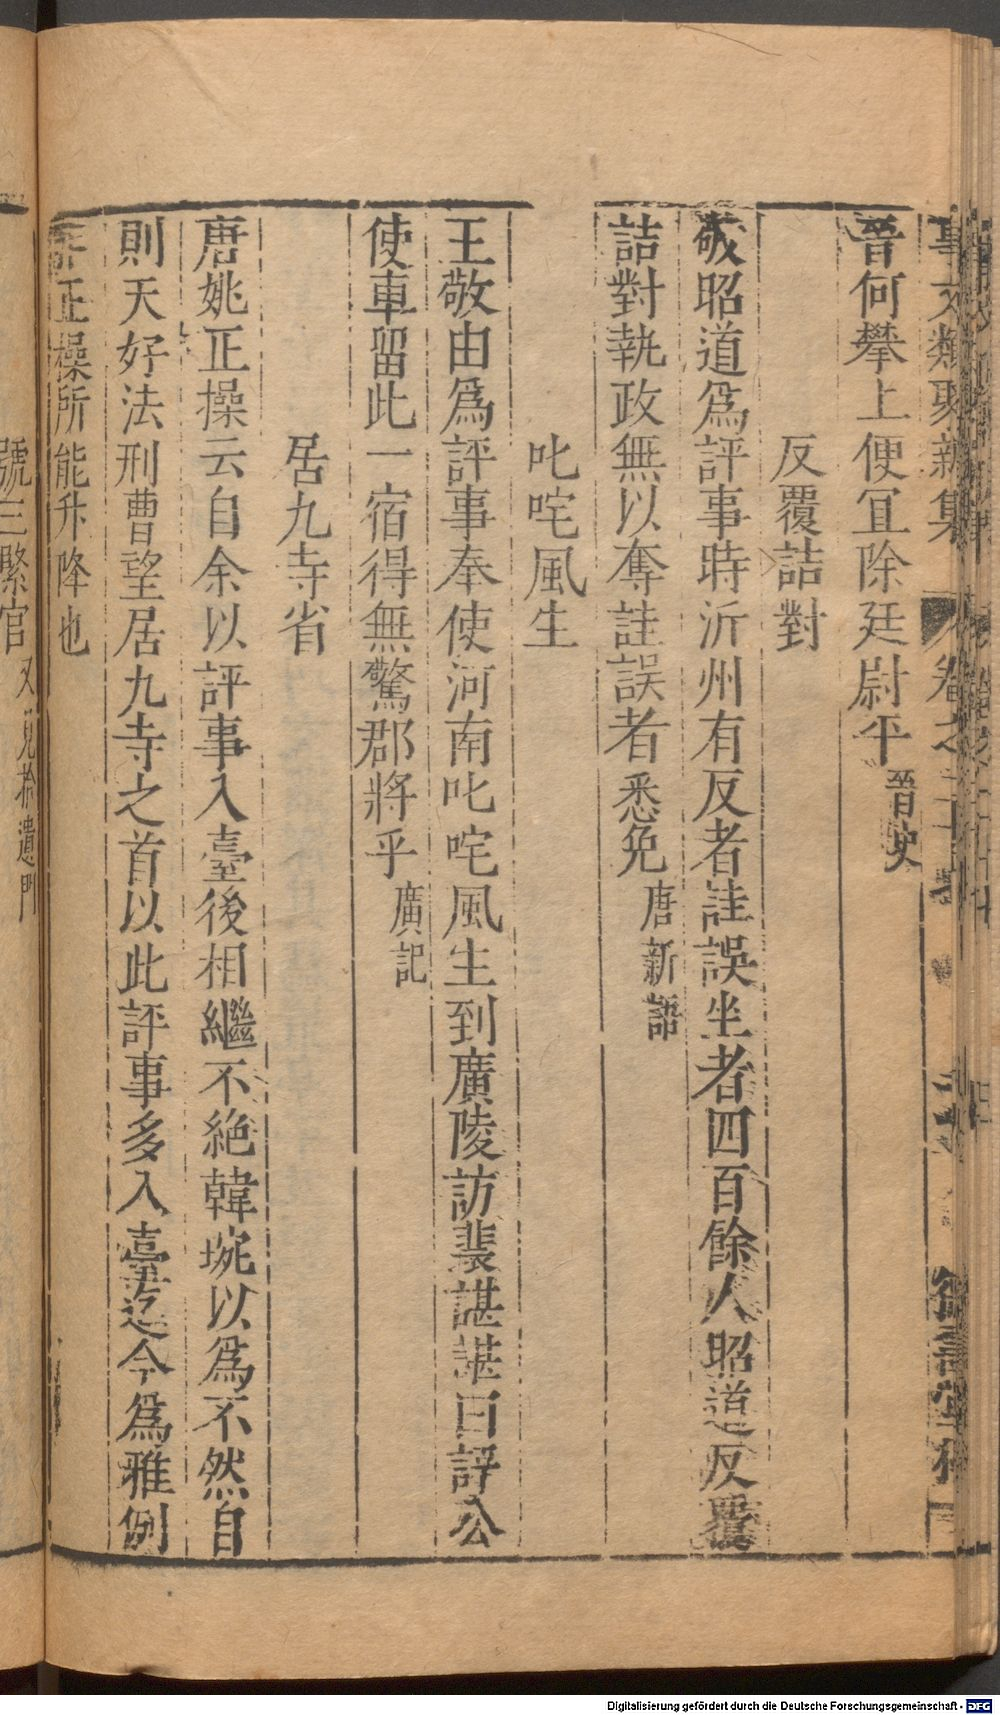 事文類聚新集 卷之二十
晉何攀上便宜除廷尉平晉史
反覆詰對
敬昭道爲評事時沂州有反者詿誤坐者四百餘人昭道反覆
詰對執政無以奪詿誤者悉免唐新語
叱咤風生
王敬由爲評事奉使河南叱咤風生到廣陵訪裴諶諶曰評公
使車留此一宿得無驚郡將乎廣記
居九寺省
唐姚正操云自余以評事入臺後相繼不絶韓琬以爲不然自
則天好法刑曹望居九寺之首以此評事多入臺迄今爲雅例
正操所能升降也
號三緊官又見拾遺門
Digitalisierung gefördert durch die Deutsche Forschungsgemeinschaft - DFG